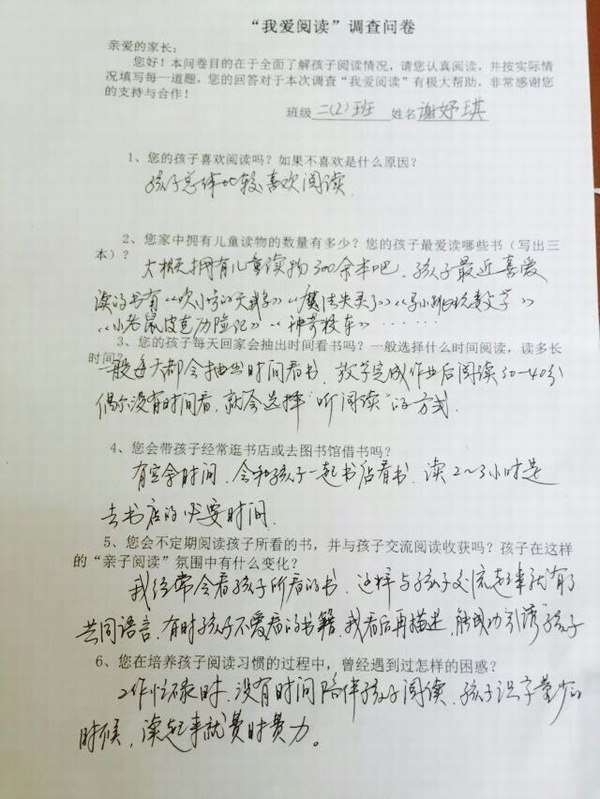 “我爱阅读”调查问卷
亲爱的家长：
您好！本问卷目的在于全面了解孩子阅读情况，请您认真阅读，并按实际情
况填写每一道题，您的回答对于本次调查“我爱阅读”有极大帮助，非常感谢您
的支持与合作！
班级 二(2)班 姓名 谢妤琪
1、您的孩子喜欢阅读吗？如果不喜欢是什么原因？
孩子总体比较喜欢阅读
2、您家中拥有儿童读物的数量有多少？您的孩子最爱读哪些书（写出三
本）？
大概拥有儿童读物300余本吧，孩子最近喜爱
读的书有《吹小号的天鹅》《魔法失灵了》《马小跳玩数学》
《小老鼠皮克历险记》《神奇校车》……
3、您的孩子每天回家会抽出时间看书吗？一般选择什么时间阅读，读多长
时间？
一般每天都会抽出时间看书，放学完成作业后阅读30-40分
偶尔没有时间看，就会选择“听阅读”的方式.
4、您会带孩子经常逛书店或去图书馆借书吗？
有空余时间，会和孩子一起书店看书，读2~3小时是
去书店的必要时间.
5、您会不定期阅读孩子所看的书，并与孩子交流阅读收获吗？孩子在这样
的“亲子阅读”氛围中有什么变化？
我经常会看孩子所看的书，这样与孩子交流起来就有了
共同语言，有时孩子不爱看的书籍，我看后再描述，能成功引诱孩子
6、您在培养孩子阅读习惯的过程中，曾经遇到过怎样的困惑？
工作忙碌时，没有时间陪伴孩子阅读，孩子识字量少的
时候，读起来就费时费力。